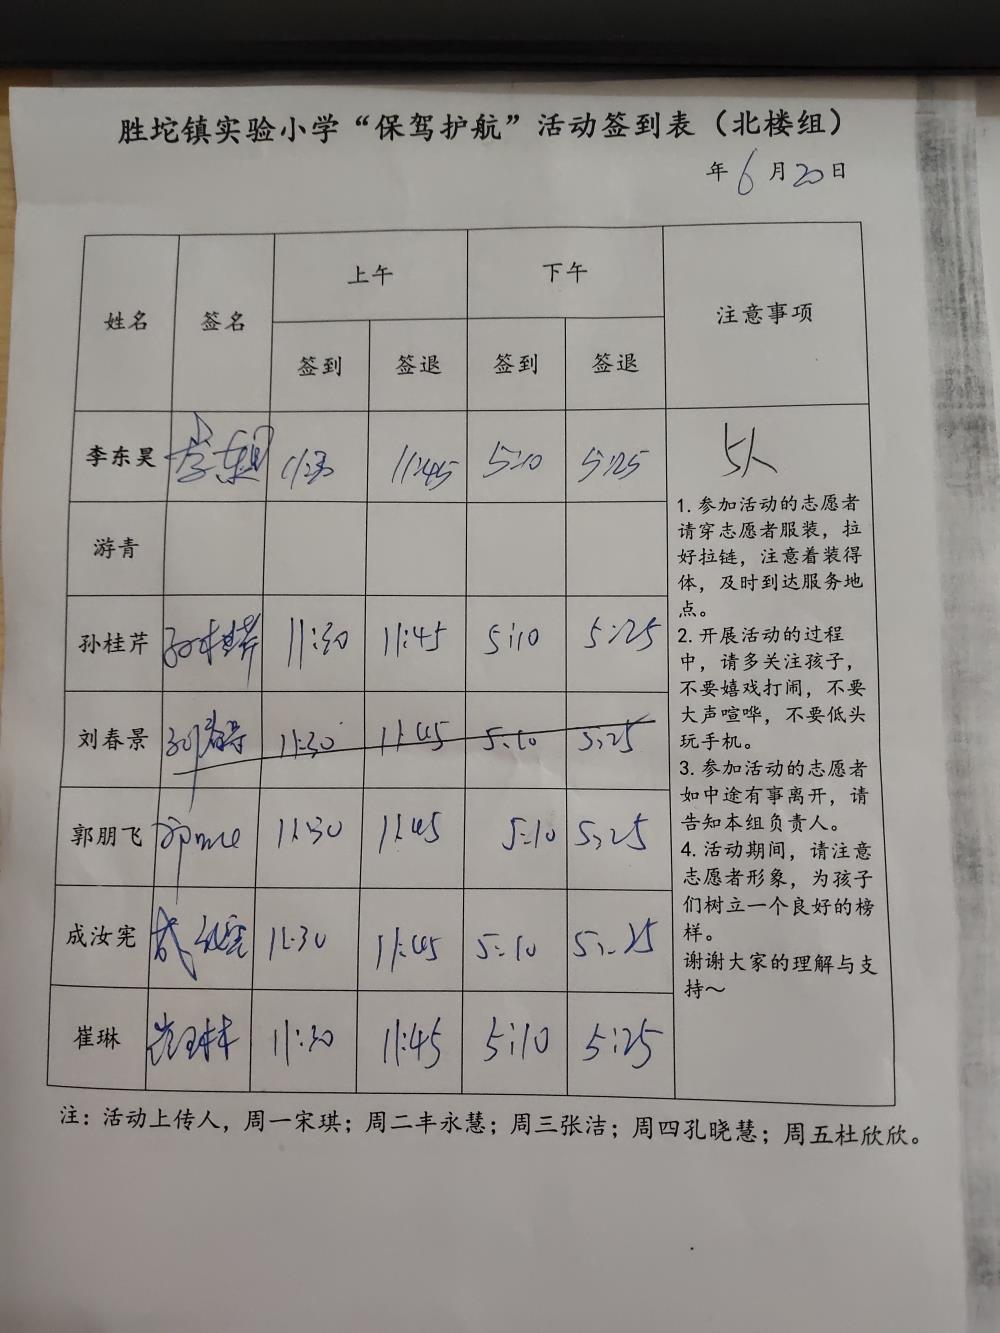 胜坨镇实验小学“保驾护航”活动签到表（北楼组）
年 6 月 20 日
姓名 签名 上午 下午 注意事项
签到 签退 签到 签退
李东昊 李东昊 11:30 11:45 5:10 5:25
5人
游青
孙桂芹 孙桂芹 11:30 11:45 5:10 5:25
刘春景 刘春景 11:30 11:45 5:10 5:25
郭朋飞 11:30 11:45 5:10 5:25
成汝宪 成汝宪 11:30 11:45 5:10 5:25
崔琳 崔琳 11:30 11:45 5:10 5:25
1. 参加活动的志愿者
请穿志愿者服装，拉
好拉链，注意着装得
体，及时到达服务地
点。
2. 开展活动的过程
中，请多关注孩子，
不要嬉戏打闹，不要
大声喧哗，不要低头
玩手机。
3. 参加活动的志愿者
如中途有事离开，请
告知本组负责人。
4. 活动期间，请注意
志愿者形象，为孩子
们树立一个良好的榜
样。
谢谢大家的理解与支
持～
注：活动上传人，周一宋琪；周二丰永慧；周三张洁；周四孔晓慧；周五杜欣欣。